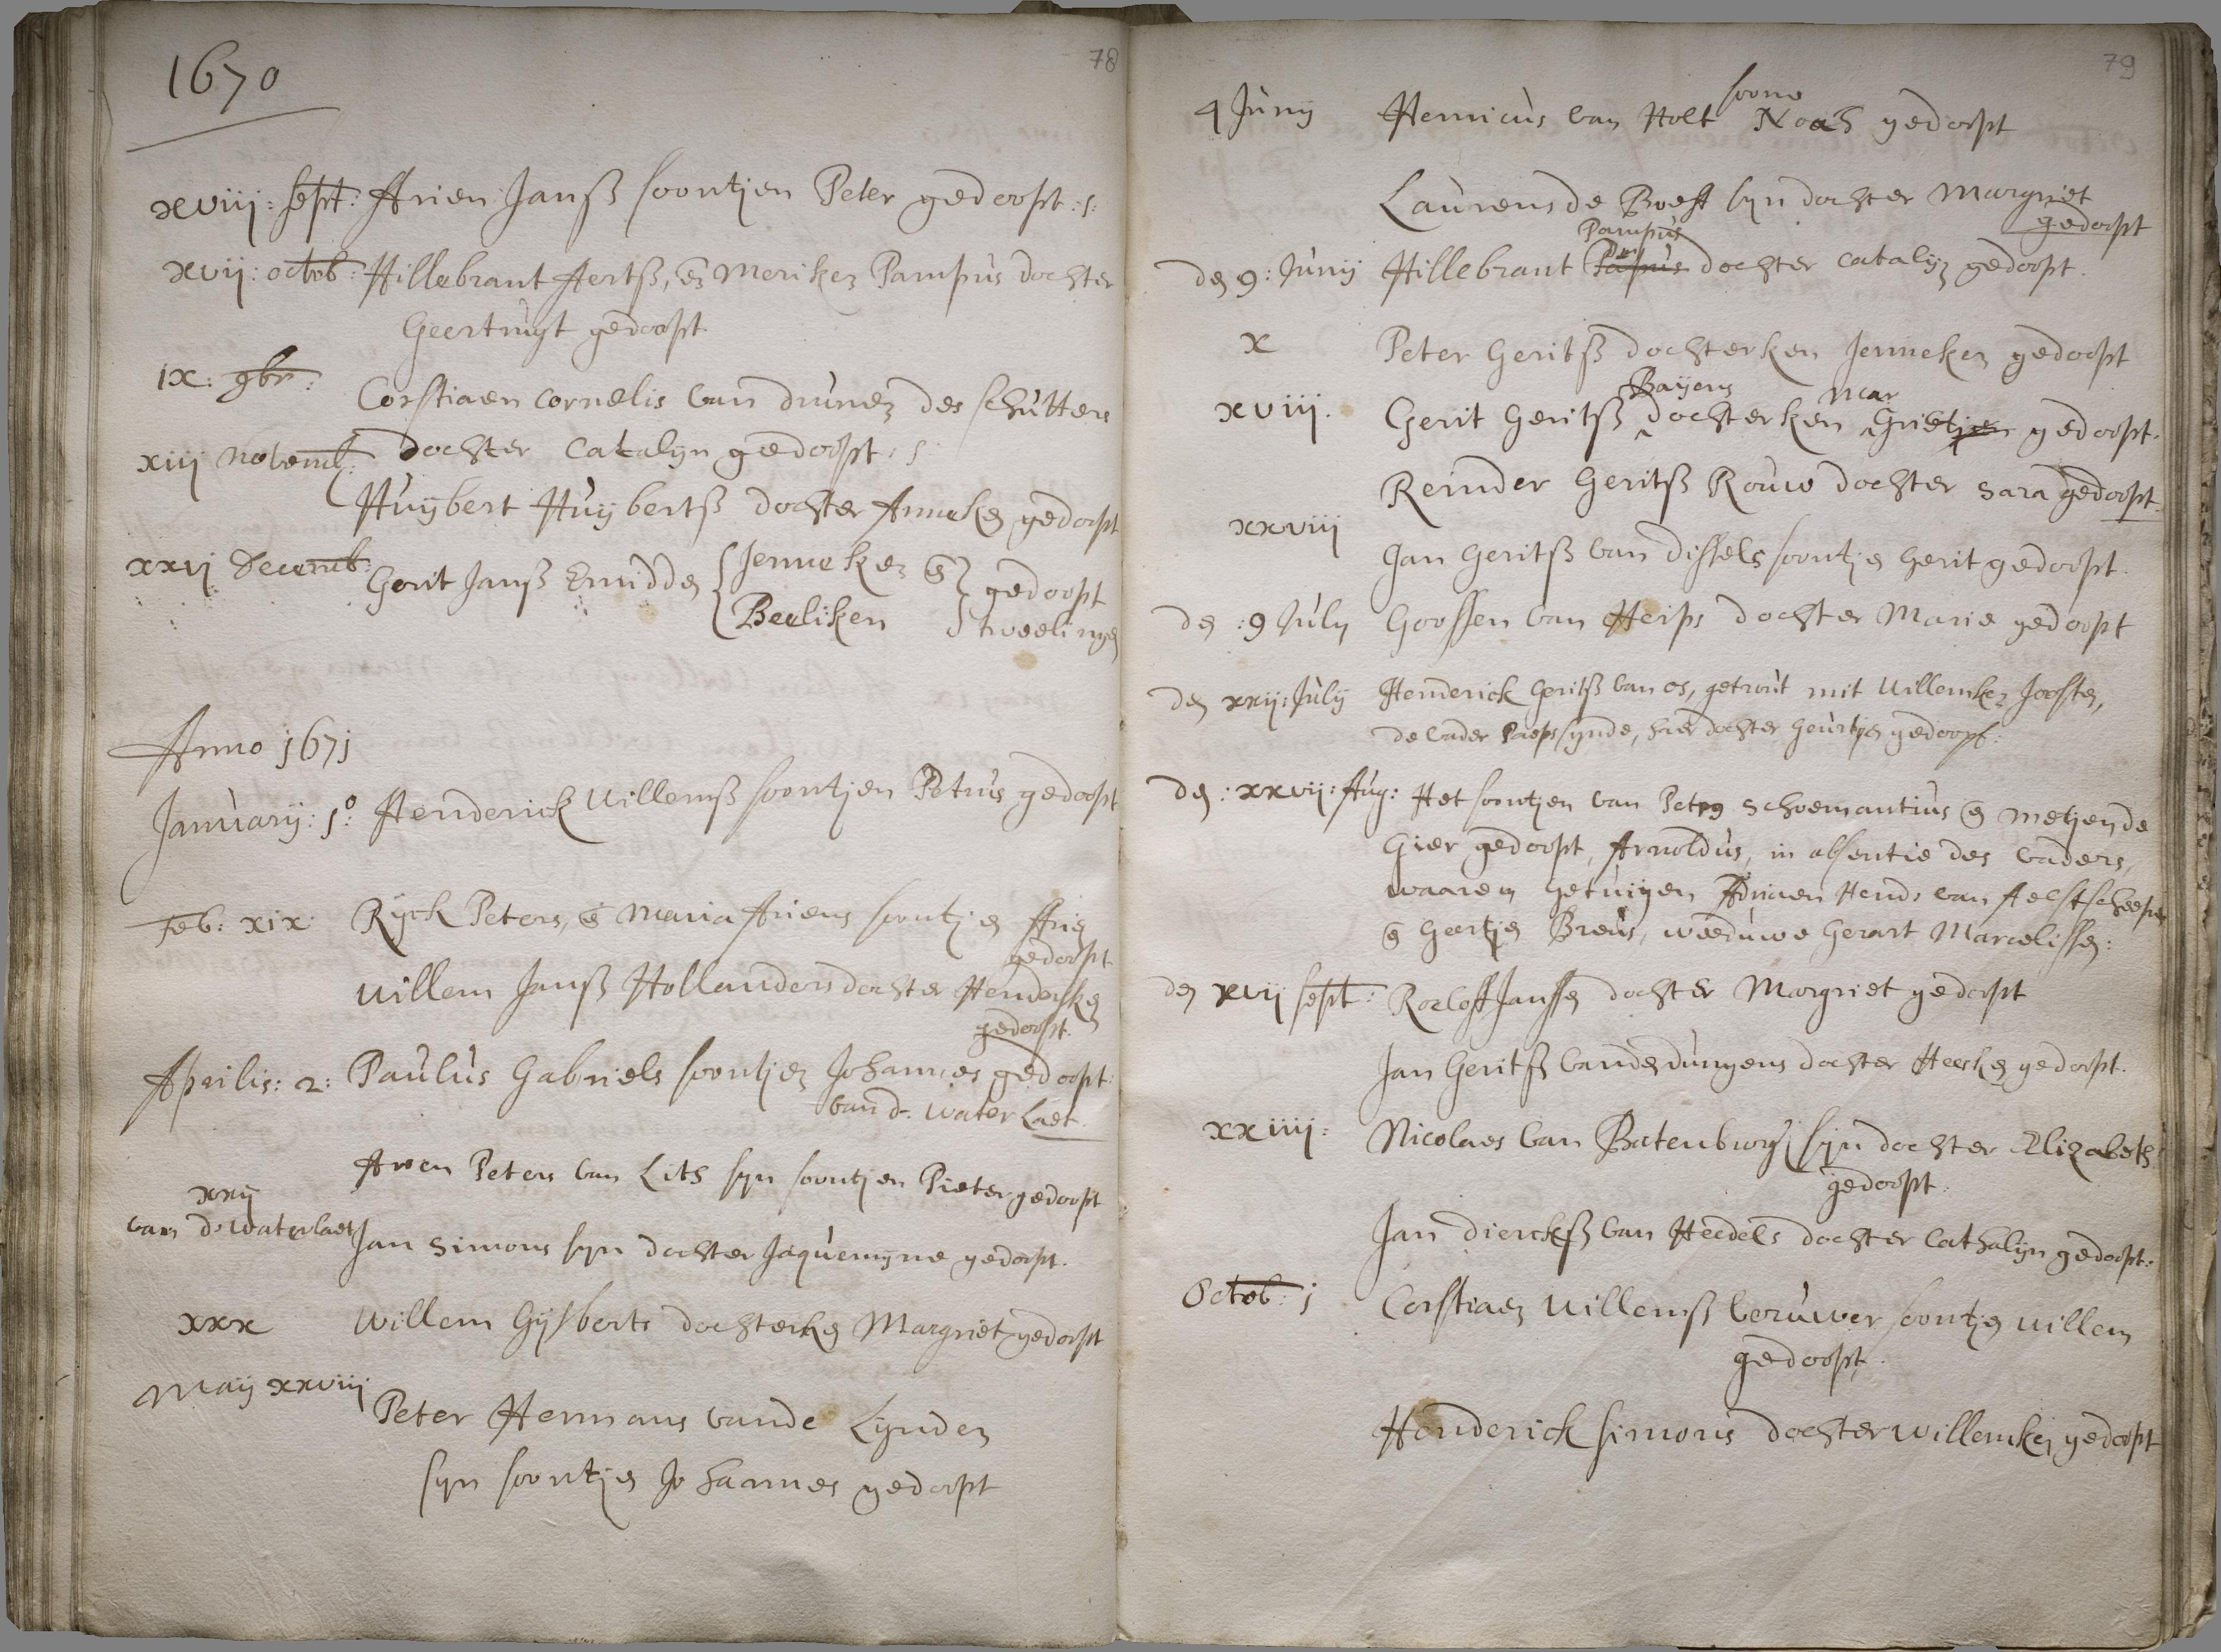 78
1670
xviij: sept: Arien Janß soontjen Peter gedoopt :s:
xvij: octob: Hillebrant Aertß, en Meriken Pampùs dochter
Geertruyt gedoopt
ix: 9br:
Corstiaen Cornelis van drunen des schùtters
xiij novemb: dochter Catalyn gedoopt: s
Huijbert Huijbertß dochter Anneken gedoopt
xxvj Decemb: Gerit Janß Smidden Jenneken en gedoopt
Beeliken tweelingen
Anno 1671
Januarij: 1o: Henderick Willemß soontjen Petrus gedoopt
Feb: xix: Ryck Peters, en Maria Ariens soontjen Arien
gedoopt
Willem Janß Hollanders dochter Hendersken
gedoopt.
Aprilis: 2: Paulùs Gabriels soontjen Johannes gedoopt:
van d. water Laet.
Aroen Peters van Lith syn soontjen Pieter gedoopt
xxij
van d. waterlaet Jan Simons syn dochter Jaquemyne gedoopt.
xxx Willem Gijsberts dochterken Margriet gedoopt
Maij xxviij
Peter Hermans vande Lynden
syn soontjen Johannes gedoopt
79
4 Junij Henricùs van Holt soone Noach gedoopt
Laùrens de Boest syn dochter Margriet
gedoopt
Pampùs
den 9: Junij Hillebrant dochter catalijn gedoopt.
x Peter Geritß dochterken Jenneken gedoopt
Baijens Mar
xviij. Gerit Geritß dochterken Grietjen gedoopt.
Reinder Geritß Rouw dochter Sara gedoopt.
xxviij
Jan Geritß van dissels soontjen Gerit gedoopt.
den :9 Julij Goossen van Heips dochter Marie gedoopt
den xxij: Julij Henderick Geritß van os, getroùt mit Willemken Joosten,
de vader Paeps synde, haer dochter Geùrtjen gedoopt:
den: xxvij: Aug: Het soontjen van Petrus Schoemantius en Metjen de
Gier gedoopt, Arnoldùs, in absentie des vaders,
waaren getuijgen Adriaen Hend: van Aelst schepen
en Geertjen Breùs, weedùwe Gerart Marcelissen:
den xvij sept: Roeloff Janssen dochter Margriet gedoopt
Jan Geritß vanden dungens dochter Heesken gedoopt.
xxiiij: Nicolaes van Batenburg syn dochter Elizabeth
gedoopt.
Jan dierckß van Heedels dochter Cathalijn gedoopt:
Octob: j Corstiaen Willemß verùwer soontjen Willem
gedoopt.
Henderick Simons dochter Willemken gedoopt